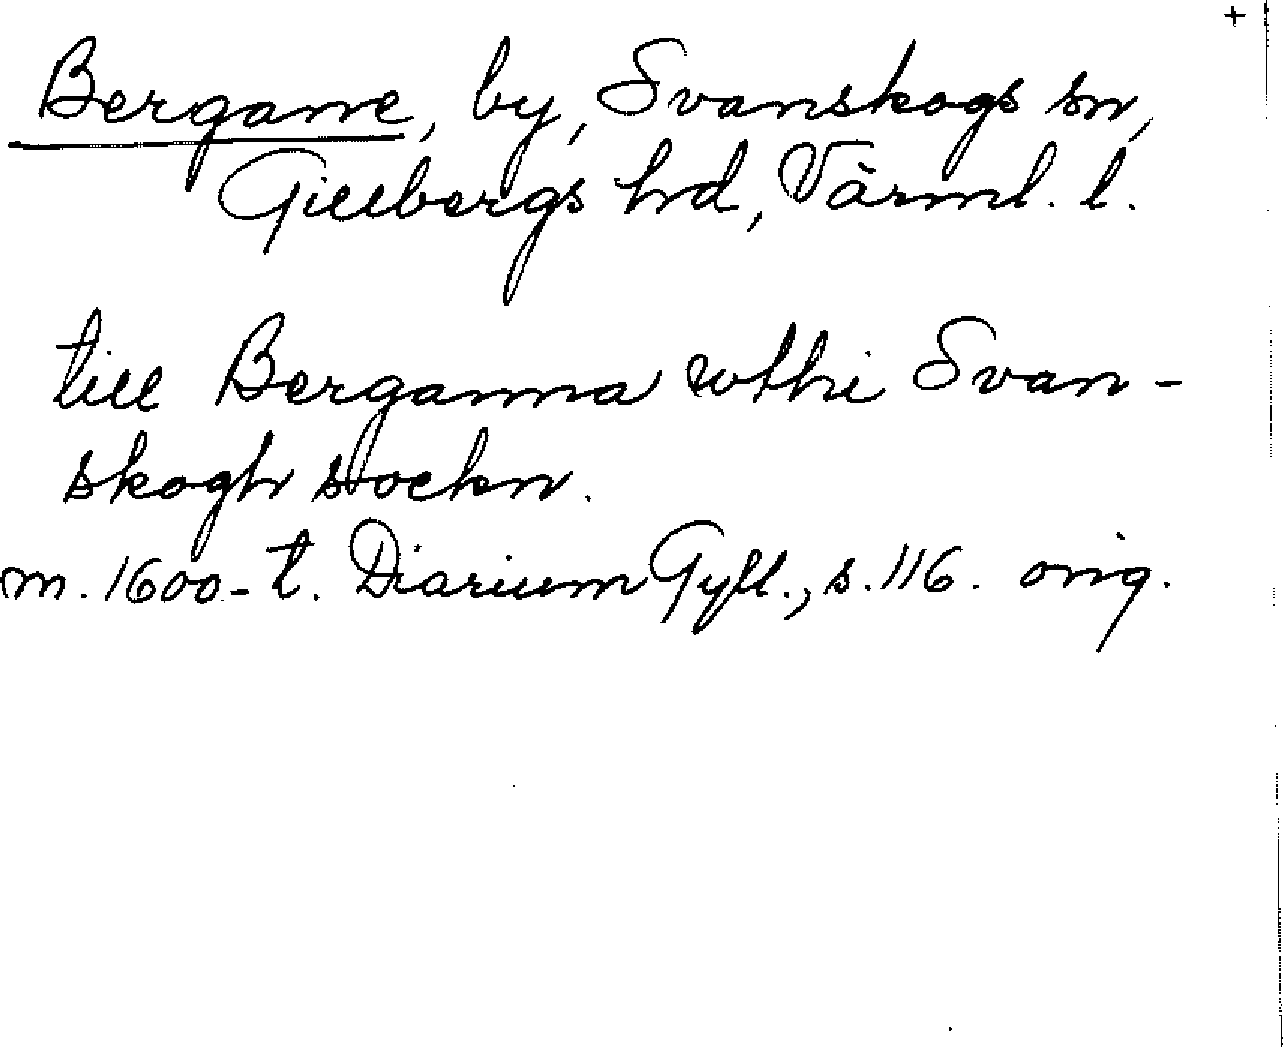 +
Bergane, by, Svanskogs sn,
Gillbergs hd, Värml. l.
till Berganna wthi Svan-
skogh sockn.
m. 1600-t. Diarium Gyll., s. 116. orig.